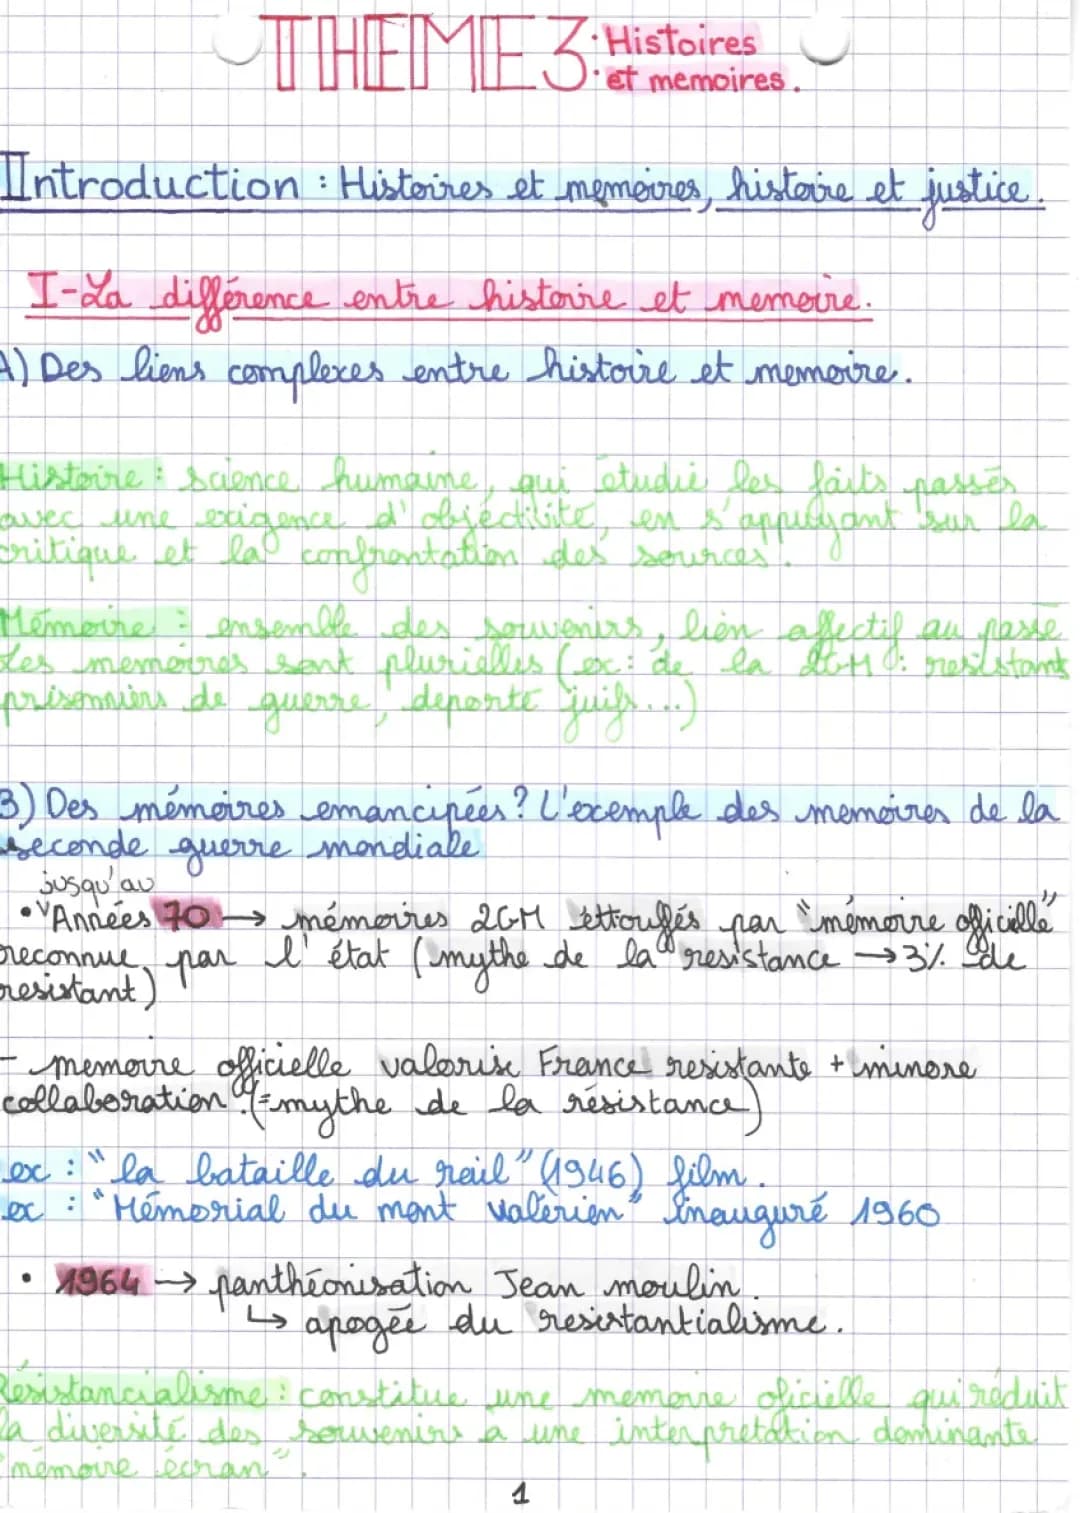 THEME 3: Histoires
et memoires.
Introduction : Histoires et memoires, histoire et justice.
I-La différence entre histoire et memoire.
A) Des liens complexes entre histoire et memoire.
Histoire : science humaine, qui étudie les faits passés
avec une exigence d'objectivité, en s'appuyant sur la
critique et la confrontation des sources.
Mémoire : ensemble des souvenirs, lien affectif au passé
Les memoires sont plurielles (ex: de la 2GM : resistant
prisonniers de guerre, deporté juifs...)
B) Des mémoires emancipées? L'exemple des memoires de la
seconde guerre mondiale
jusqu'au
• Années 70 → mémoires 2GM ettouffés par "mémoire officielle"
reconnue par l'état (mythe de la resistance → 3% de
resistant)
- memoire officielle valorise France resistante + minore
collaboration (=mythe de la résistance)
ex : "la bataille du rail" (1946) film.
ex : "Mémorial du mont valérien" inauguré 1960
• 1964 → panthéonisation Jean moulin.
↳ apogée du resistantialisme.
Résistancialisme : constitue une memoire oficielle qui réduit
la diversité des souvenirs a une interpretation dominante
"mémoire écran".
1